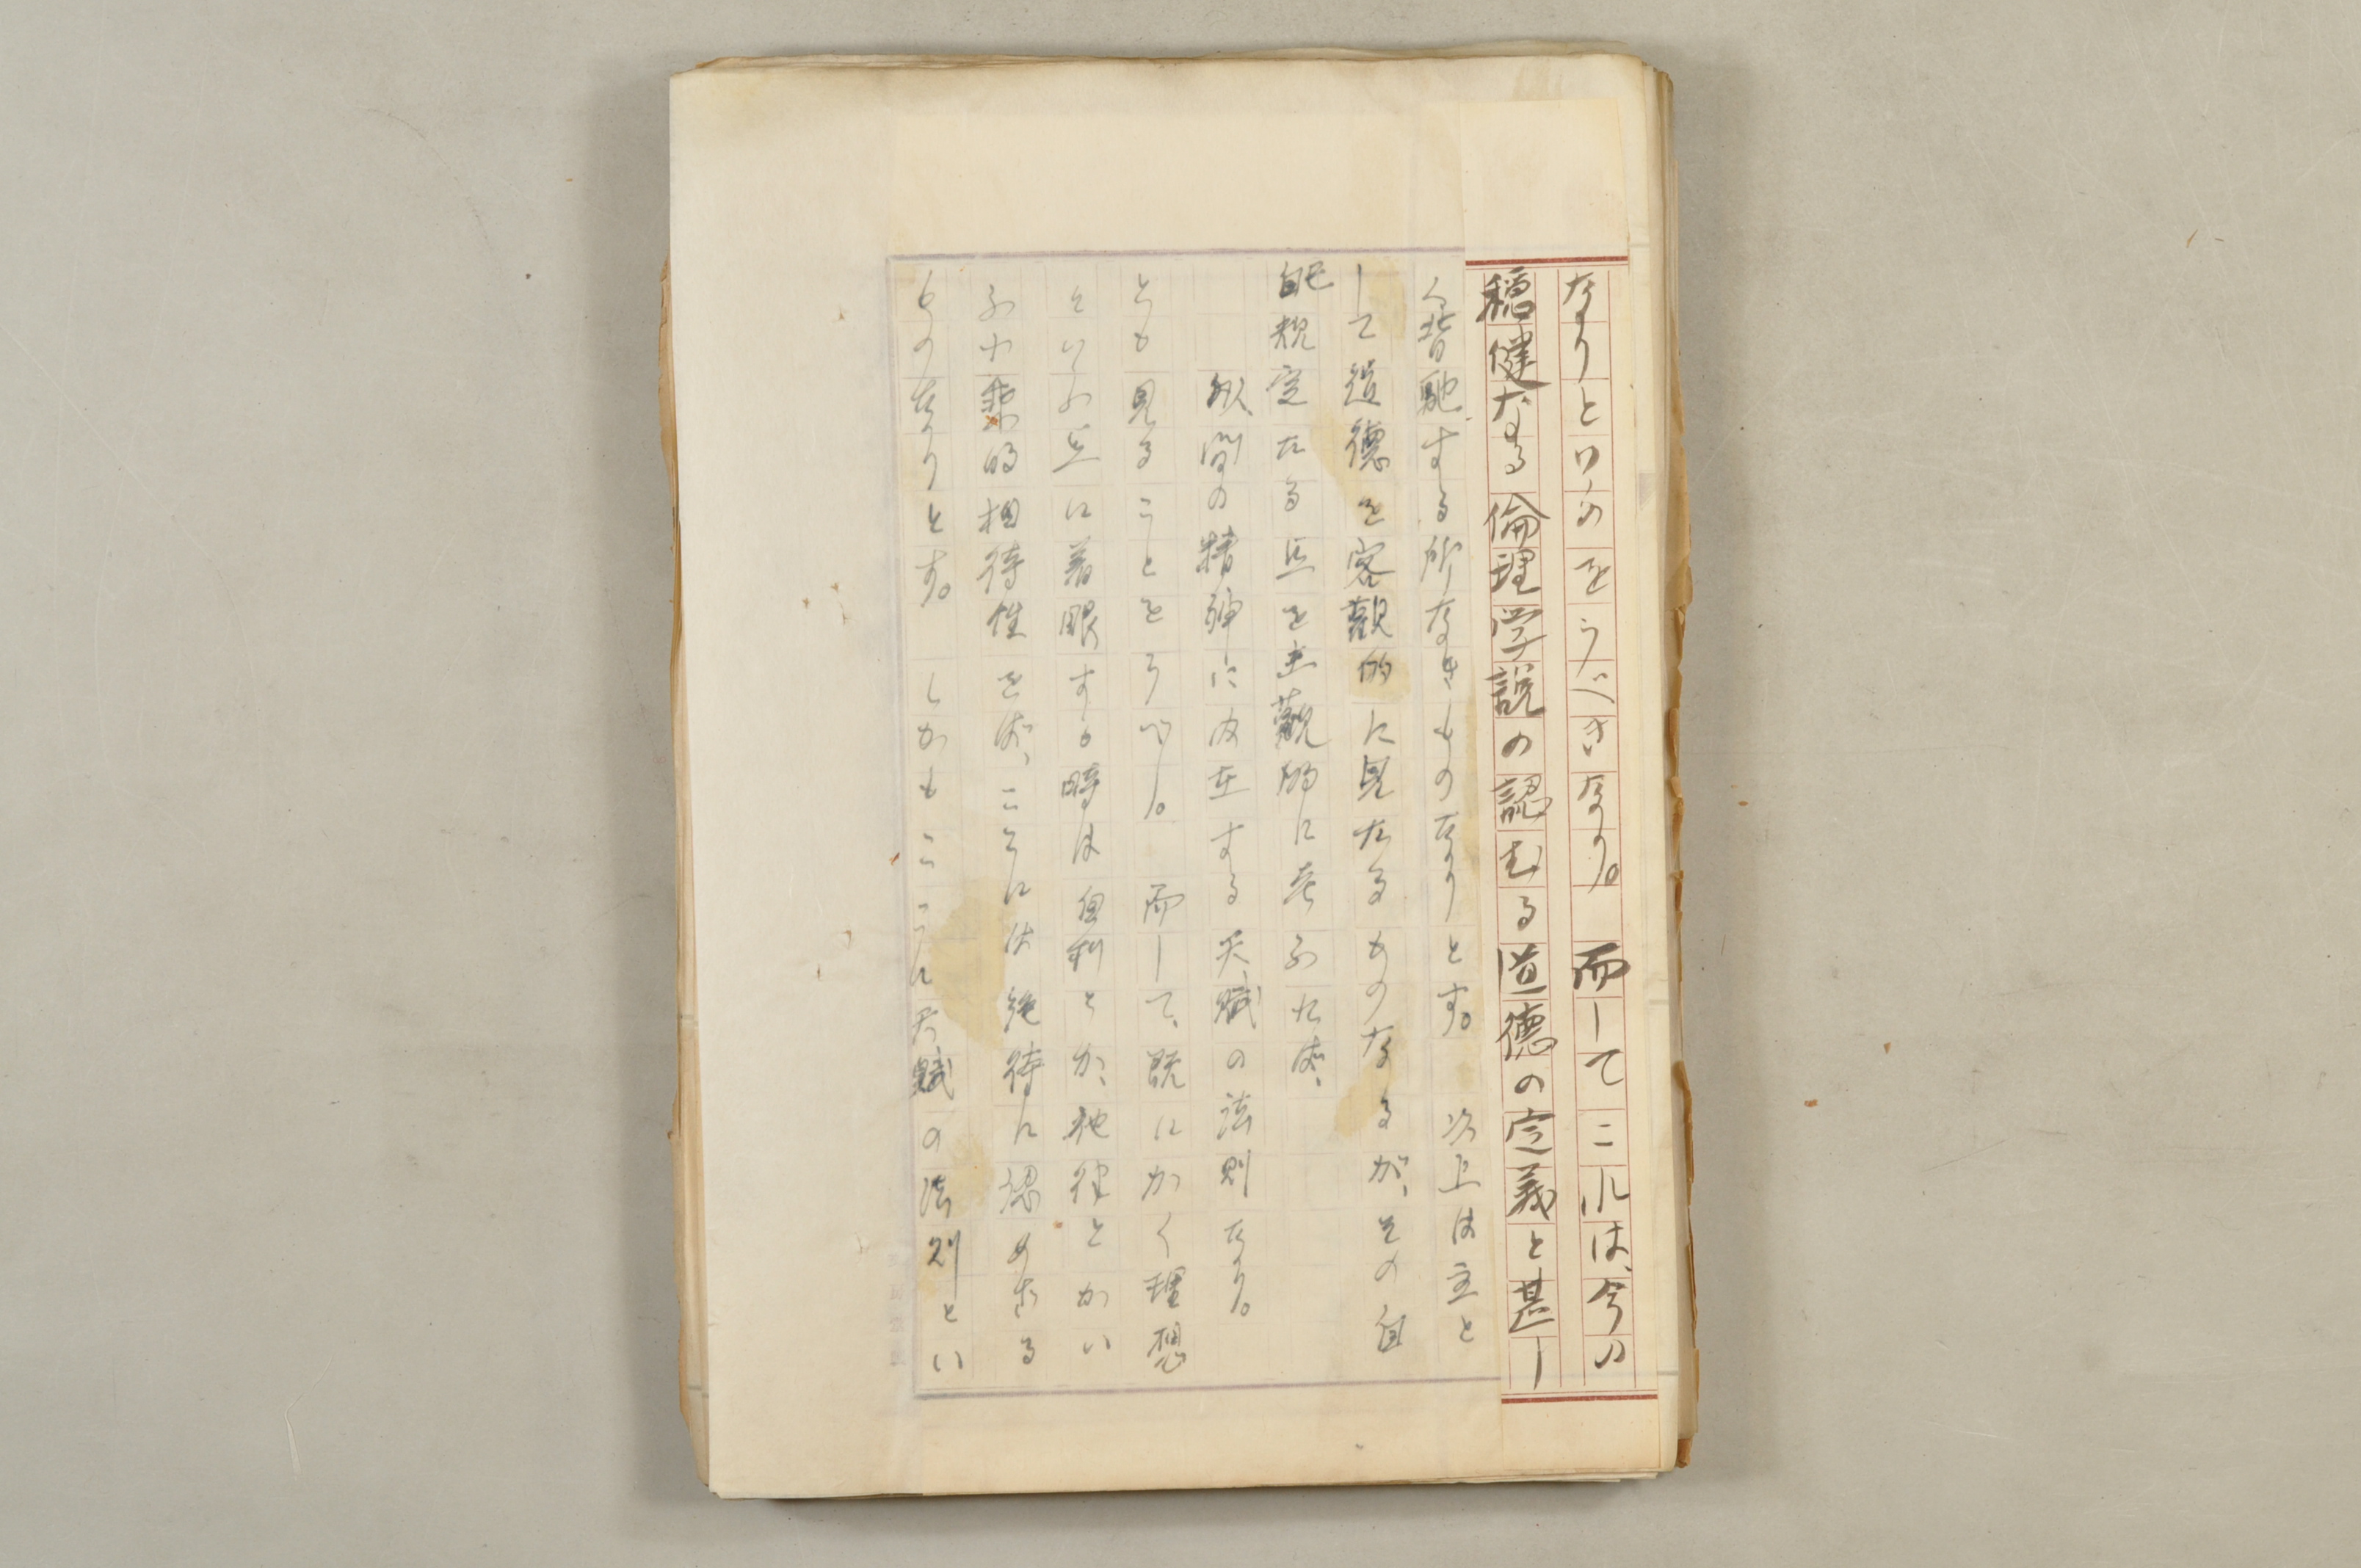 なりといふのをうべきなり。 而してこれは、今の
穏健なる倫理学説の認むる道徳の定義と甚し
く背馳する所なきものなりとす。 以上は主と
して道徳を客観的に見たるものなるが、その自
己規定たる点を主観的に考ふれば、
人間の精神に内在する天賦の法則なり。
とも見ることをうべし。 而して、既にかく理想
といふ点に着眼する時は自利とか、他律とかい
ふ小乗的相待性を 、ここには絶待に認めざる
ものなりとす。 しかもここに天賦の法則とい